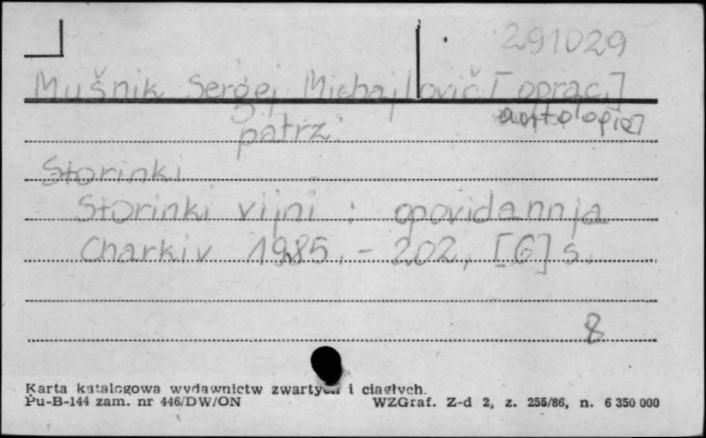 291029
Mušnik Sergej Michajlovič [oprac.]
antologia]
patrz
Storinki
Storinki vijni : opovidannja
Charkiv 1985. - 202, [6] s.
8
Karta katalogowa wydawnictw zwartych i ciągłych.
Pu-B-144 zam. nr 446/DW/ON WZGraf. Z-d 2, z. 255/86, n. 6 350 000